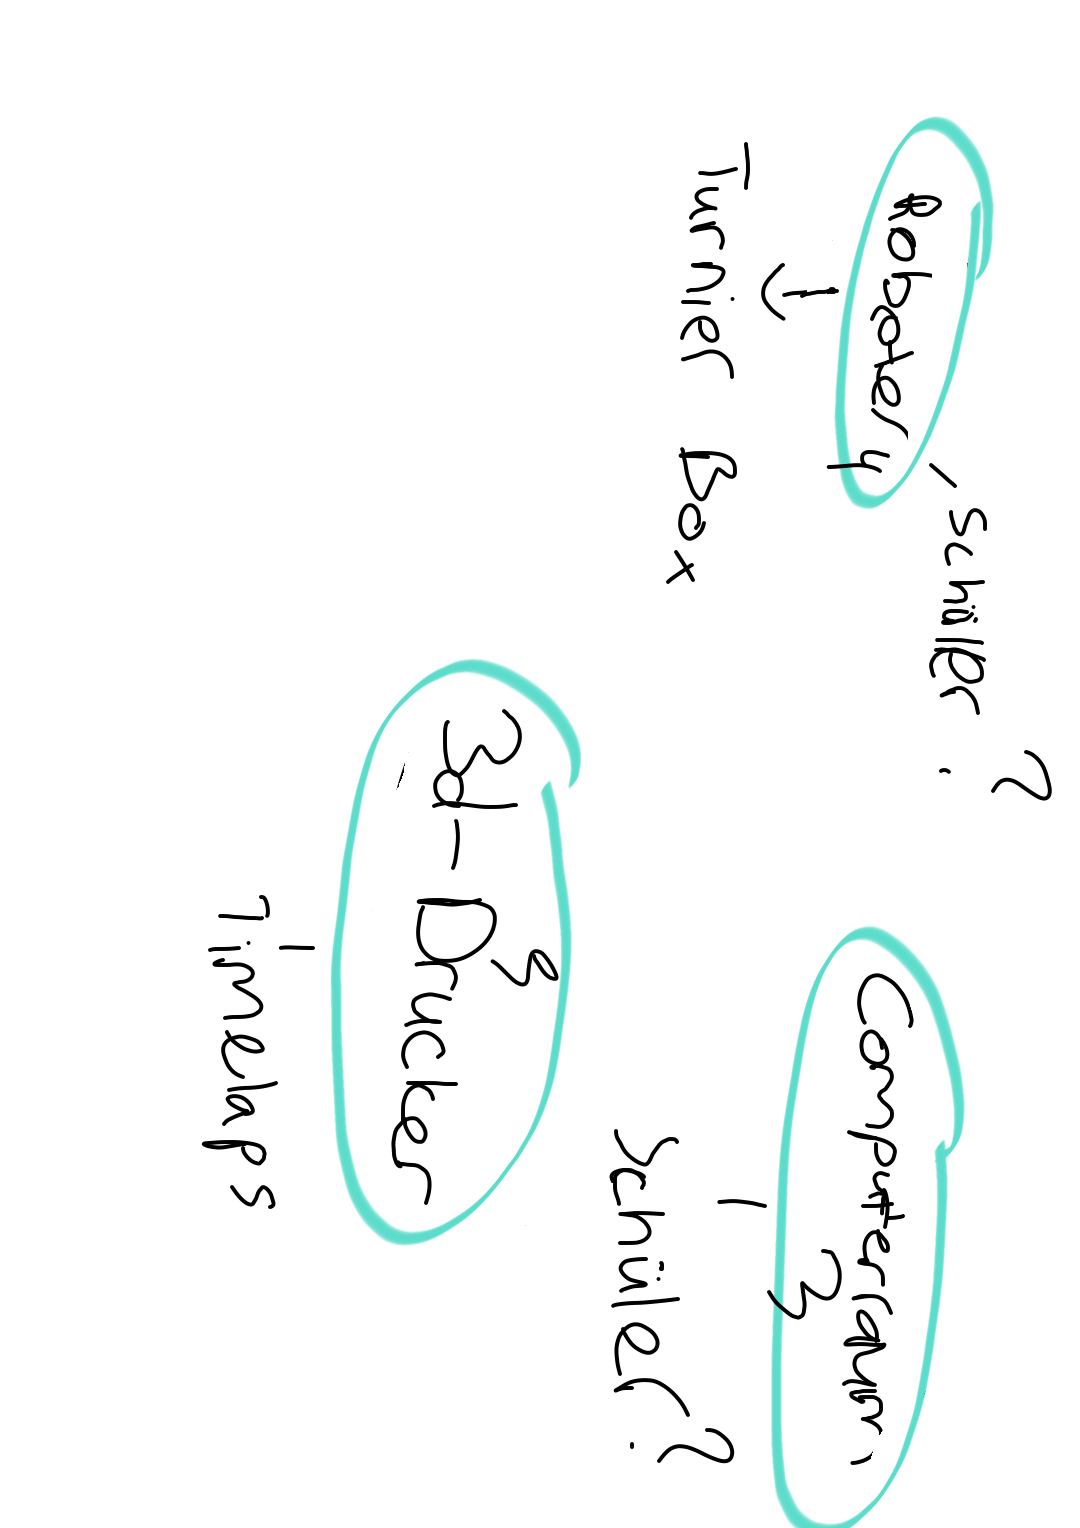 Roboter
4
Schüller ?
Turnier Box
Computerraum
3
Schüler?
3d-Drucker
8
Timelaps